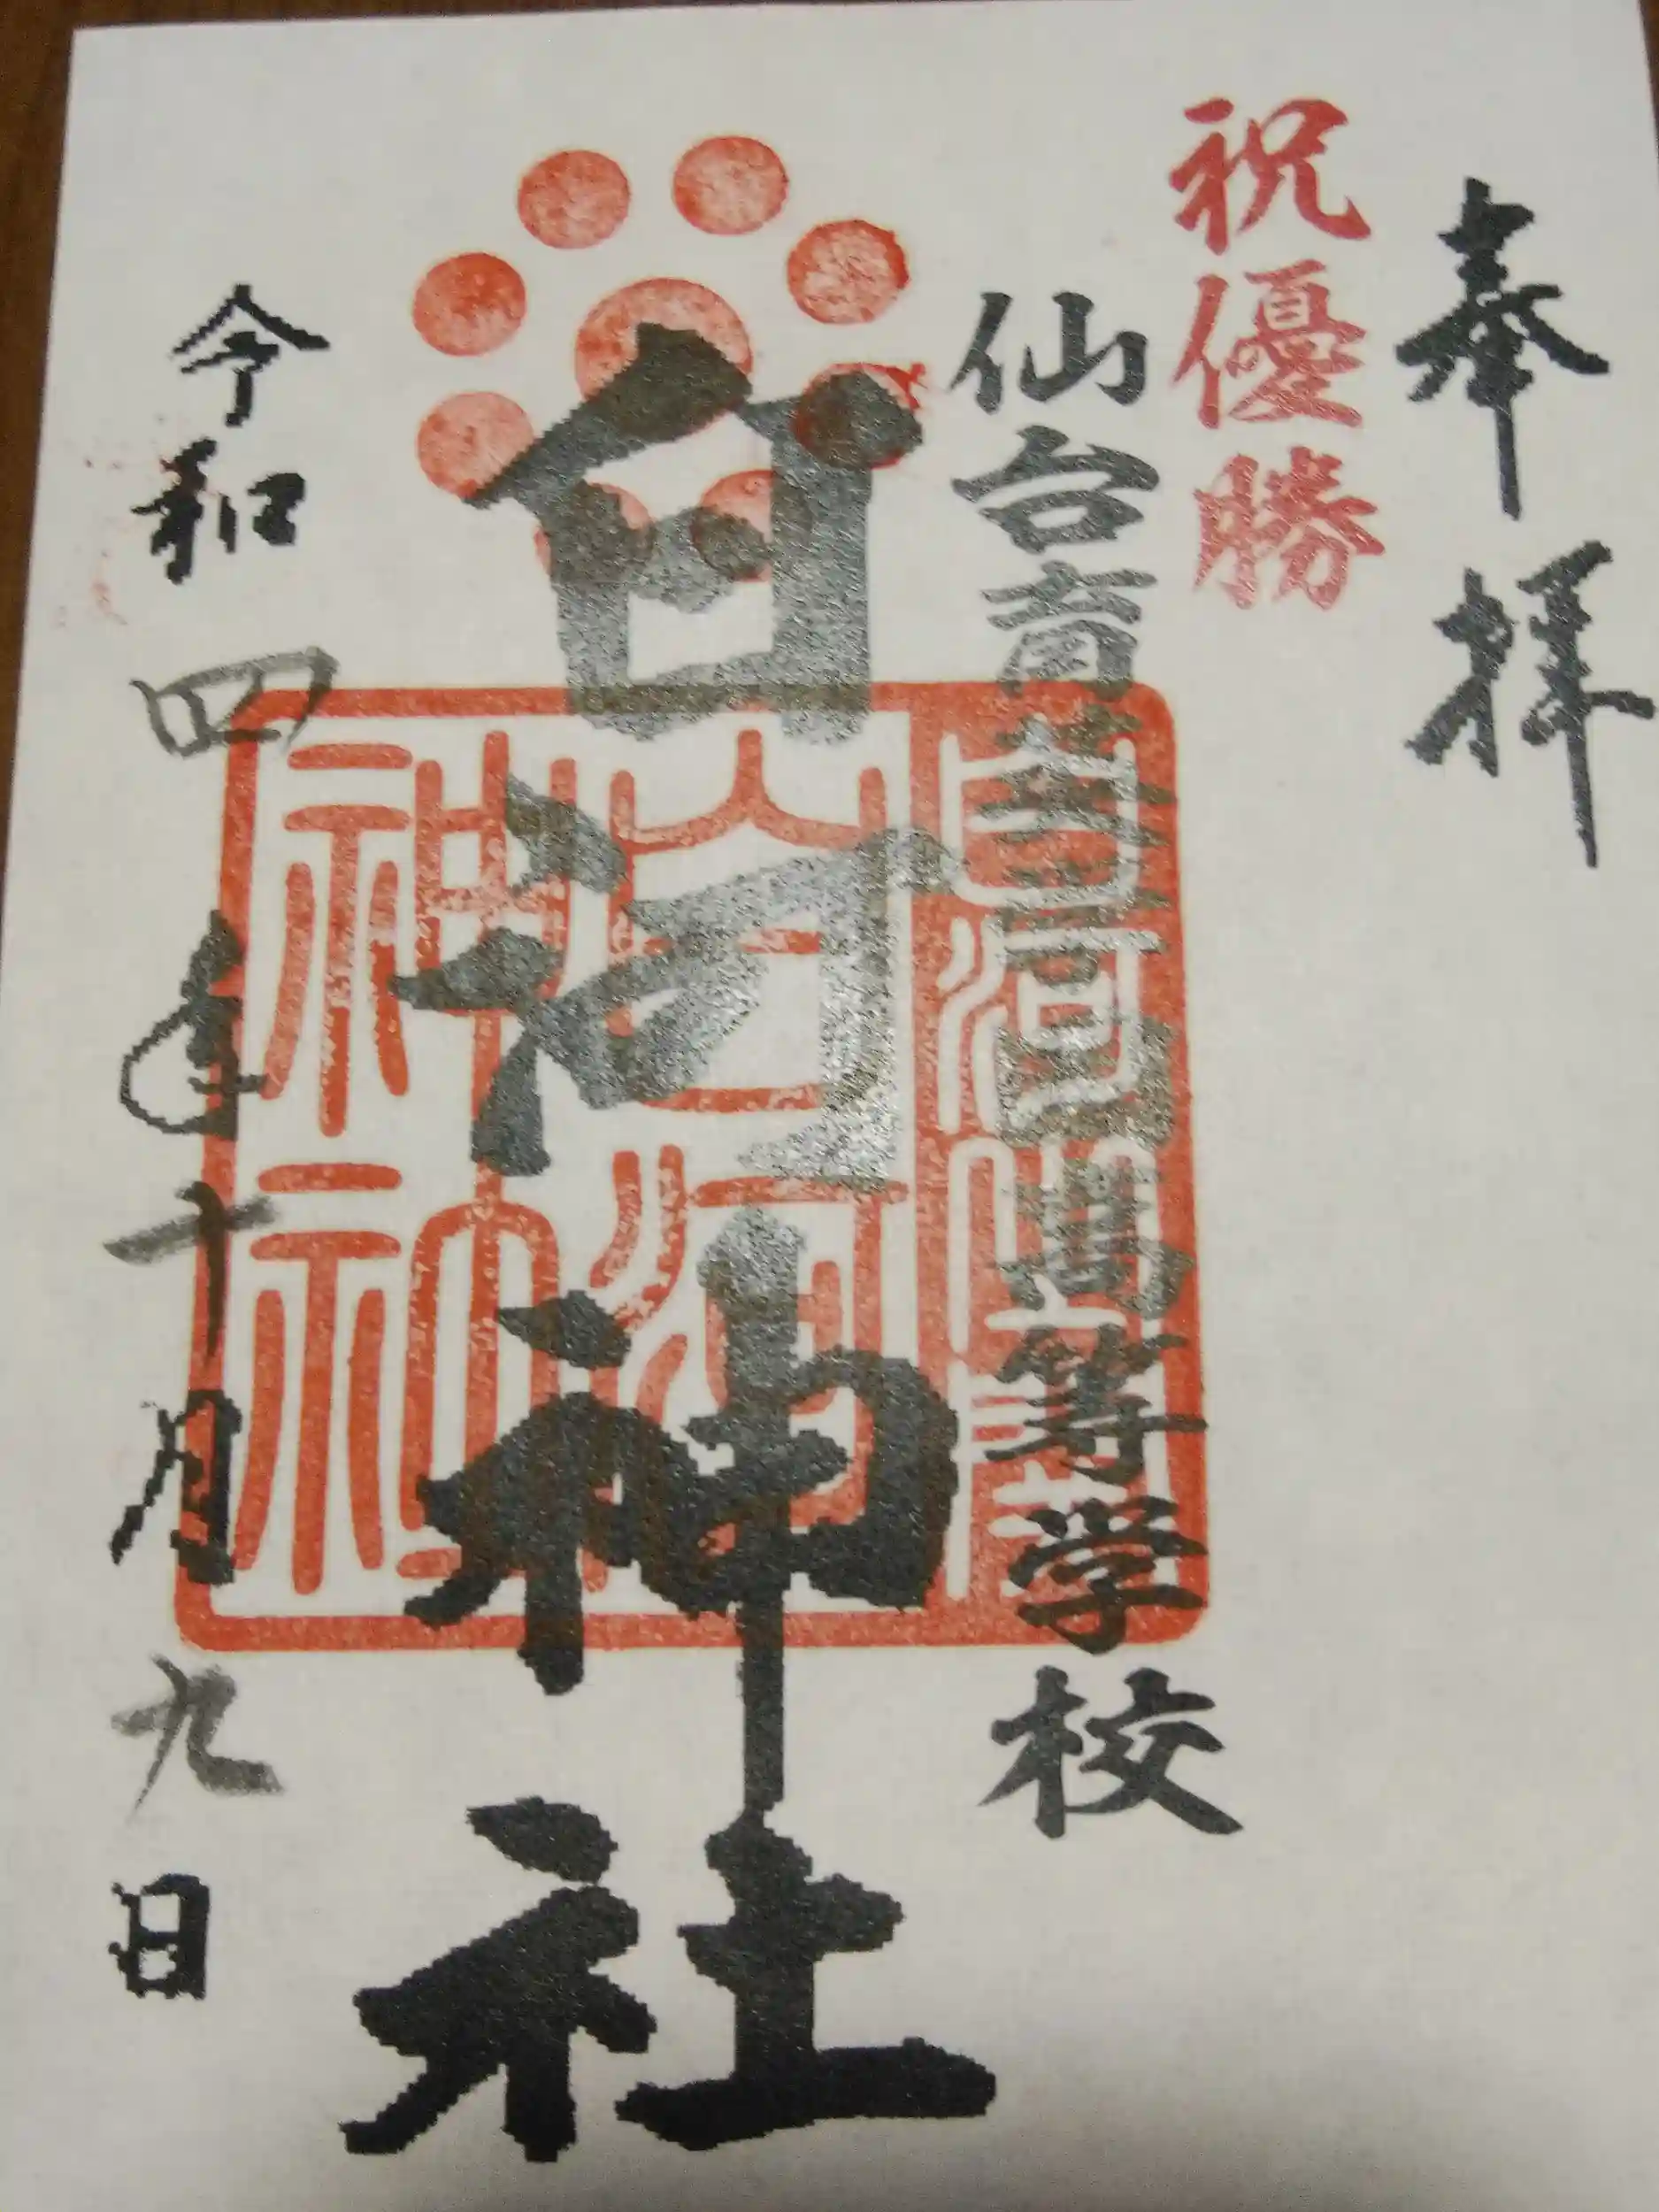 奉拝
祝優勝
仙台育英学園高等学校
白河神社
令和四年十月九日